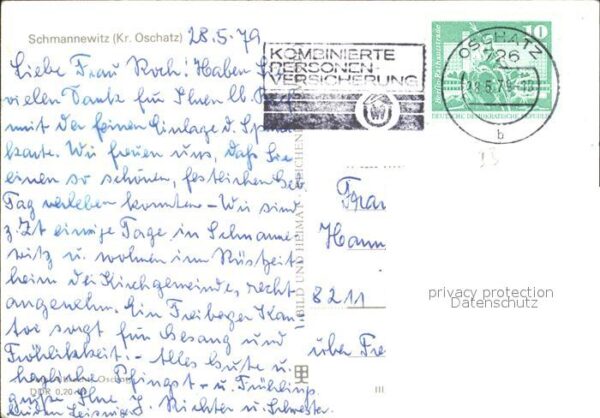 Schmannewitz (Kr. Oschatz) 28.5.79
Liebe Frau Koch! Haben
vielen Dank für Ihren lb.
mit der feinen Einlage d.
karte. Wir freuen uns, daß Sie
einen so schönen, festlichen Geb
Tag verleben konnten – Wir sind
z. Zt einige Tage in Schmanne-
witz u. wohnen im Rüstzeit
heim der Kirchgemeinde, recht
angenehm. Ein Freiberger Kan
tor sorgt für Gesang und
Fröhlichkeit. – Alles Gute u.
herzliche Pfingst- u. Frühlings
grüße Ihre J. Richter u. Schwester.
Oschatz
DDR 0,20
KOMBINIERTE
PERSONEN-
VERSICHERUNG
OSCHATZ
726
28.5.79
b
10
DEUTSCHE DEMOKRATISCHE REPUBLIK
BILD UND HEIMAT REICHENBACH
Frau
Hann
8211
über Fre
privacy protection
Datenschutz